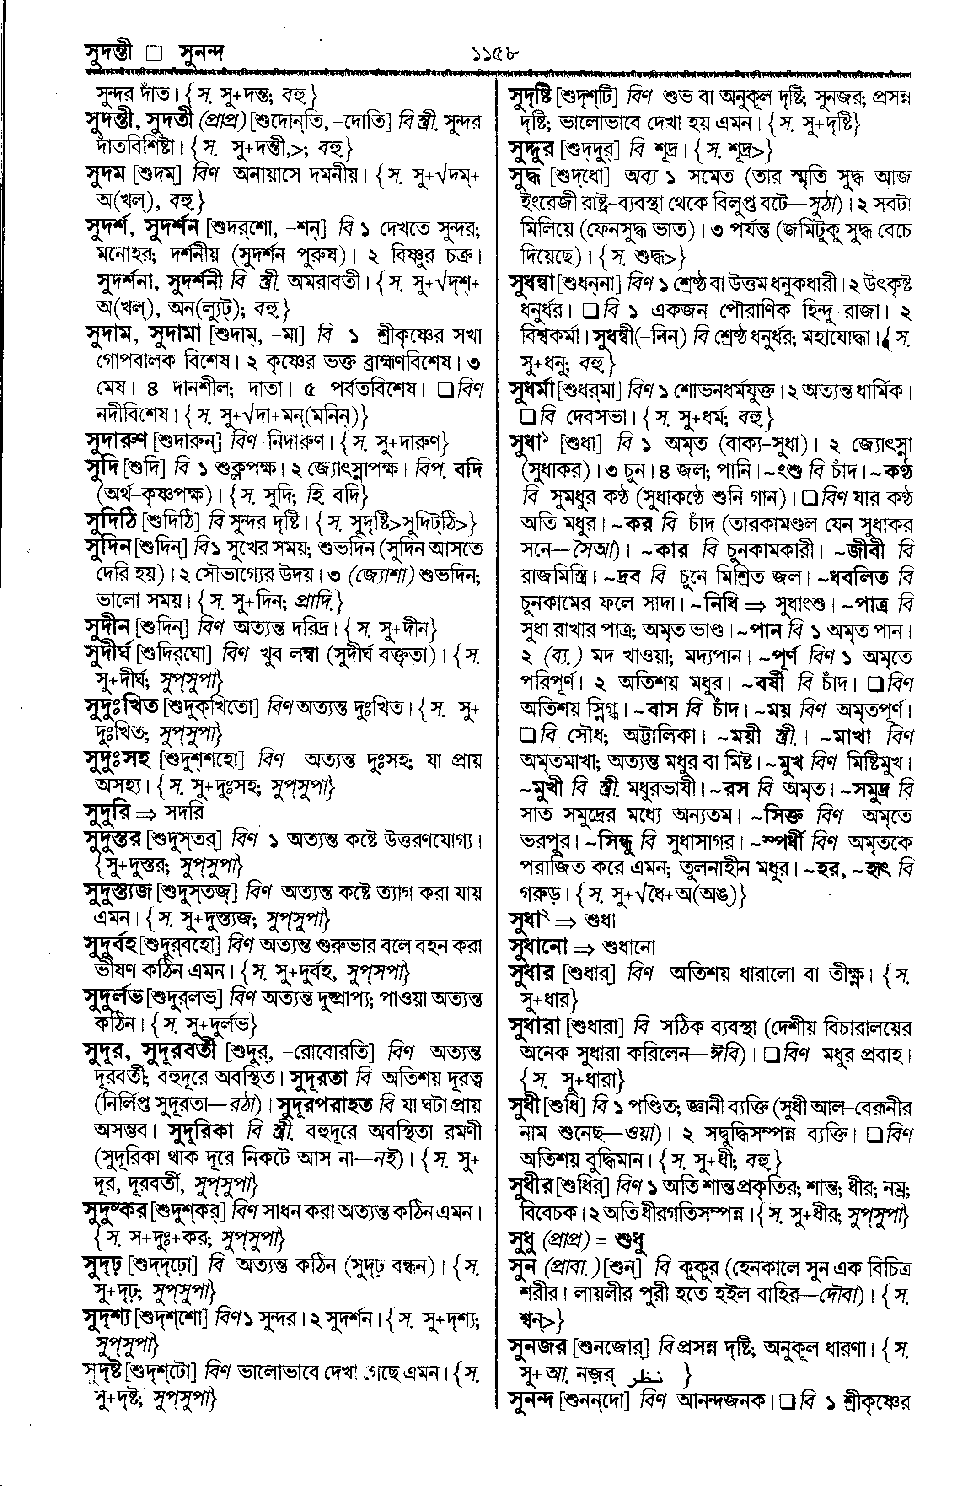 সুদন্তী □ সুনন্দ
১১৫৮
সুন্দর দাঁত। {স. সু+দন্ত; বহু}
সুদন্তী, সুদতী (প্রাপ্র) [শুদোন্‌তি, –দোতি] বি স্ত্রী. সুন্দর
দাঁতবিশিষ্টা। {স. সু+দন্তী,>; বহু}
সুদম [শুদম্] বিণ অনায়াসে দমনীয়। {স. সু+√দম্+
অ(খল্), বহু}
সুদর্শ, সুদর্শন [শুদর্‌শো, –শন্] বি ১ দেখতে সুন্দর;
মনোহর; দর্শনীয় (সুদর্শন পুরুষ)। ২ বিষ্ণুর চক্র।
সুদর্শনা, সুদর্শনী বি স্ত্রী. অমরাবতী। {স. সু+√দৃশ্+
অ(খল্), অন(ল্যুট্); বহু}
সুদাম, সুদামা [শুদাম্, –মা] বি ১ শ্রীকৃষ্ণের সখা
গোপবালক বিশেষ। ২ কৃষ্ণের ভক্ত ব্রাহ্মণবিশেষ। ৩
মেঘ। ৪ দানশীল; দাতা। ৫ পর্বতবিশেষ। □ বিণ
নদীবিশেষ। {স. সু+√দা+মন্(মনিন্)}
সুদারুণ [শুদারুন্] বিণ নিদারুণ। {স. সু+দারুণ}
সুদি [শুদি] বি ১ শুক্লপক্ষ। ২ জ্যোৎস্নাপক্ষ। বিপ. বদি
(অর্থ-কৃষ্ণপক্ষ)। {স. সুদি; হি. বদি}
সুদিঠি [শুদিঠি] বি সুন্দর দৃষ্টি। {স. সুদৃষ্টি>সুদিট্‌ঠি>}
সুদিন [শুদিন্] বি১ সুখের সময়; শুভদিন (সুদিন আসতে
দেরি হয়)। ২ সৌভাগ্যের উদয়। ৩ (জ্যোশা) শুভদিন;
ভালো সময়। {স. সু+দিন; প্রাদি.}
সুদীন [শুদিন্] বিণ অত্যন্ত দরিদ্র। {স. সু+দীন}
সুদীর্ঘ [শুদির্‌ঘো] বিণ খুব লম্বা (সুদীর্ঘ বক্তৃতা)। {স.
সু+দীর্ঘ; সুপ্‌সুপা}
সুদুঃখিত [শুদুক্‌খিতো] বিণ অত্যন্ত দুঃখিত। {স. সু+
দুঃখিত; সুপ্‌সুপা}
সুদুঃসহ [শুদুশ্‌শহো] বিণ অত্যন্ত দুঃসহ; যা প্রায়
অসহ্য। {স. সু+দুঃসহ; সুপ্‌সুপা}
সুদুরি ⇒ সদরি
সুদুস্তর [শুদুস্‌তর্] বিণ ১ অত্যন্ত কষ্টে উত্তরণযোগ্য।
{সু+দুস্তর; সুপ্‌সুপা}
সুদুস্ত্যজ [শুদুস্‌তজ্] বিণ অত্যন্ত কষ্টে ত্যাগ করা যায়
এমন। {স. সু+দুস্ত্যজ; সুপ্‌সুপা}
সুদুর্বহ [শুদুর্‌বহো] বিণ অত্যন্ত গুরুভার বলে বহন করা
ভীষণ কঠিন এমন। {স. সু+দুর্বহ, সুপ্‌সপা}
সুদুর্লভ [শুদুর্‌লভ্] বিণ অত্যন্ত দুষ্প্রাপ্য; পাওয়া অত্যন্ত
কঠিন। {স. সু+দুর্লভ}
সুদূর, সুদূরবর্তী [শুদুর্, –রোবোরতি] বিণ অত্যন্ত
দূরবর্তী; বহুদূরে অবস্থিত। সুদূরতা বি অতিশয় দূরত্ব
(নির্লিপ্ত সুদূরতা—রঠা)। সুদূরপরাহত বি যা ঘটা প্রায়
অসম্ভব। সুদূরিকা বি স্ত্রী. বহুদূরে অবস্থিতা রমণী
(সুদূরিকা থাক দূরে নিকটে আস না—নই)। {স. সু+
দূর, দূরবর্তী, সুপ্‌সুপা}
সুদুষ্কর [শুদুশ্‌কর্] বিণ সাধন করা অত্যন্ত কঠিন এমন।
{স. স+দুঃ+কর; সুপ্‌সুপা}
সুদৃঢ় [শুদ্‌দৃঢ়ো] বি অত্যন্ত কঠিন (সুদৃঢ় বন্ধন)। {স.
সু+দৃঢ়; সুপ্‌সুপা}
সুদৃশ্য [শুদ্‌দৃশ্‌শো] বিণ ১ সুন্দর। ২ সুদর্শন। {স. সু+দৃশ্য;
সুপ্‌সুপা}
সুদৃষ্ট [শুদৃশ্‌টো] বিণ ভালোভাবে দেখা গেছে এমন। {স.
সু+দৃষ্ট; সুপ্‌সুপা}
সুদৃষ্টি [শুদৃশ্‌টি] বিণ শুভ বা অনুকূল দৃষ্টি; সুনজর; প্রসন্ন
দৃষ্টি; ভালোভাবে দেখা হয় এমন। {স. সু+দৃষ্টি}
সুদ্দুর [শুদ্‌দুর্] বি শূদ্র। {স. শূদ্র>}
সুদ্ধ [শুদ্‌ধো] অব্য ১ সমেত (তার স্মৃতি সুদ্ধ আজ
ইংরেজী রাষ্ট্র-ব্যবস্থা থেকে বিলুপ্ত বটে—সুঠা)। ২ সবটা
মিলিয়ে (ফেনসুদ্ধ ভাত)। ৩ পর্যন্ত (জমিটুকু সুদ্ধ বেচে
দিয়েছে)। {স. শুদ্ধ>}
সুধন্বা [শুধন্‌না] বিণ ১ শ্রেষ্ঠ বা উত্তম ধনুকধারী। ২ উৎকৃষ্ট
ধনুর্ধর। □ বি ১ একজন পৌরাণিক হিন্দু রাজা। ২
বিশ্বকর্মা। সুধন্বী(–নিন্) বি শ্রেষ্ঠ ধনুর্ধর; মহাযোদ্ধা। {স.
সু+ধনু; বহু}
সুধর্মা [শুধর্‌মা] বিণ ১ শোভনধর্মযুক্ত। ২ অত্যন্ত ধার্মিক।
□ বি দেবসভা। {স. সু+ধর্ম; বহু}
সুধা১ [শুধা] বি ১ অমৃত (বাক্য-সুধা)। ২ জ্যোৎস্না
(সুধাকর)। ৩ চুন। ৪ জল; পানি। ~ংশু বি চাঁদ। ~কণ্ঠ
বি সুমধুর কণ্ঠ (সুধাকণ্ঠে শুনি গান)। □ বিণ যার কণ্ঠ
অতি মধুর। ~কর বি চাঁদ (তারকামণ্ডল যেন সুধাকর
সনে—সৈআ)। ~কার বি চুনকামকারী। ~জীবী বি
রাজমিস্ত্রি। ~দ্রব বি চুনে মিশ্রিত জল। ~ধবলিত বি
চুনকামের ফলে সাদা। ~নিধি ⇒ সুধাংশু। ~পাত্র বি
সুধা রাখার পাত্র; অমৃত ভাণ্ড। ~পান বি ১ অমৃত পান।
২ (ব্য.) মদ খাওয়া; মদ্যপান। ~পূর্ণ বিণ ১ অমৃতে
পরিপূর্ণ। ২ অতিশয় মধুর। ~বর্ষী বি চাঁদ। □ বিণ
অতিশয় স্নিগ্ধ। ~বাস বি চাঁদ। ~ময় বিণ অমৃতপূর্ণ।
□ বি সৌধ; অট্টালিকা। ~ময়ী স্ত্রী.। ~মাখা বিণ
অমৃতমাখা; অত্যন্ত মধুর বা মিষ্ট। ~মুখ বিণ মিষ্টিমুখ।
~মুখী বি স্ত্রী. মধুরভাষী। ~রস বি অমৃত। ~সমুদ্র বি
সাত সমুদ্রের মধ্যে অন্যতম। ~সিক্ত বিণ অমৃতে
ভরপুর। ~সিন্ধু বি সুধাসাগর। ~স্পর্ধী বিণ অমৃতকে
পরাজিত করে এমন; তুলনাহীন মধুর। ~হর, ~হৃৎ বি
গরুড়। {স. সু+√ধৈ+অ(অঙ্)}
সুধা২ ⇒ শুধা
সুধানো ⇒ শুধানো
সুধার [শুধার্] বিণ অতিশয় ধারালো বা তীক্ষ্ণ। {স.
সু+ধার}
সুধারা [শুধারা] বি সঠিক ব্যবস্থা (দেশীয় বিচারালয়ের
অনেক সুধারা করিলেন—ঈবি)। □ বিণ মধুর প্রবাহ।
{স. সু+ধারা}
সুধী [শুধি] বি ১ পণ্ডিত; জ্ঞানী ব্যক্তি (সুধী আল–বেরূনীর
নাম শুনেছ—ওয়া)। ২ সদ্বুদ্ধিসম্পন্ন ব্যক্তি। □ বিণ
অতিশয় বুদ্ধিমান। {স. সু+ধী; বহু}
সুধীর [শুধির্] বিণ ১ অতি শান্ত প্রকৃতির; শান্ত; ধীর; নম্র;
বিবেচক। ২ অতি ধীরগতিসম্পন্ন। {স. সু+ধীর; সুপ্‌সুপা}
সুধু (প্রাপ্র) = শুধু
সুন (প্রাবা.) [শুন্] বি কুকুর (হেনকালে সুন এক বিচিত্র
শরীর। লায়লীর পুরী হতে হইল বাহির—দৌবা)। {স.
শ্বন্>}
সুনজর [শুনজোর্] বি প্রসন্ন দৃষ্টি; অনুকূল ধারণা। {স.
সু+আ. নজ়র্ نظر }
সুনন্দ [শুনন্‌দো] বিণ আনন্দজনক। □ বি ১ শ্রীকৃষ্ণের